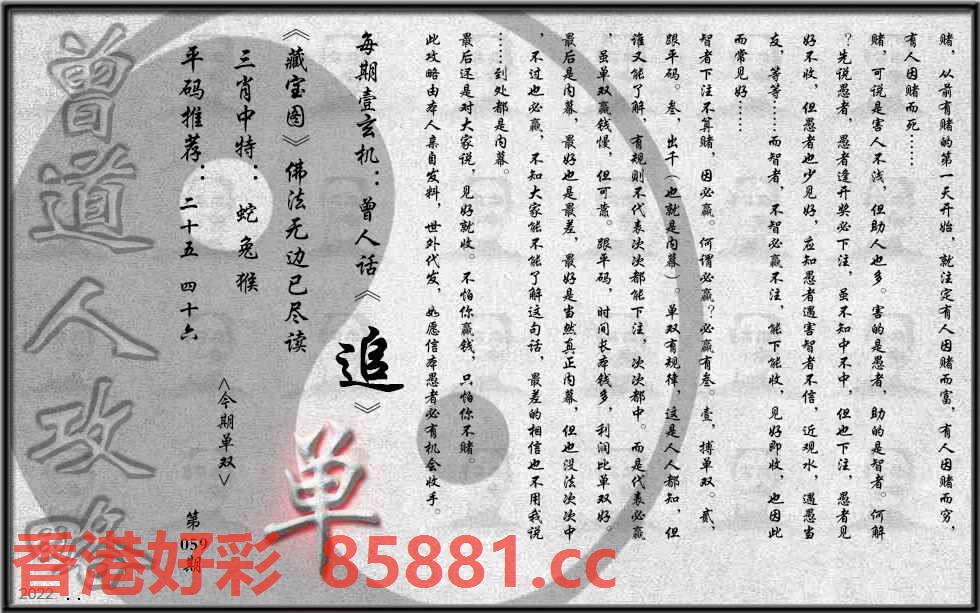 赌，从前有赌的第一天开始，就注定有人因赌而富，有人因赌而穷，
有人因赌而死……
赌，可说是害人不浅，但助人也多。害的是愚者，助的是智者。何解
？先说愚者，愚者逢开奖必下注，虽不知中不中，但也下注，愚者见
好不收，但愚者也少见好，应知愚者遇害智者不信，近观水，遇愚当
友，等等……而智者，不智必赢不注，能下能收，见好即收，也因此
而常见好……
智者下注不算赌，因必赢。何谓必赢？必赢有叁。壹，搏单双。贰，
跟平码。叁，出千（也就是内幕）。单双有规律，这是人人都知，但
谁又能了解，有规则不代表次次都能下注，次次都中。而是代表必赢
，虽单双赢钱慢，但可靠。跟平码，时间长本钱多，利润比单双好。
最后是内幕，最好也是最差，最好是当然真正内幕，但也没法次次中
，不过也必赢，不知大家能不能了解这句话，最差的相信也不用我说
……到处都是内幕。
最后还是对大家说，见好就收。不怕你赢钱，只怕你不赌。
此攻略由本人亲自发料，世外代发，如愿信本愚者必有机会收手。
每期壹玄机：曾人话《追》
《藏宝图》佛法无边已尽读
三肖中特：蛇兔猴
平码推荐：二十五 四十六
<今期单双>
单
第059期
曾道人攻略
香港好彩 85881.cc
2022